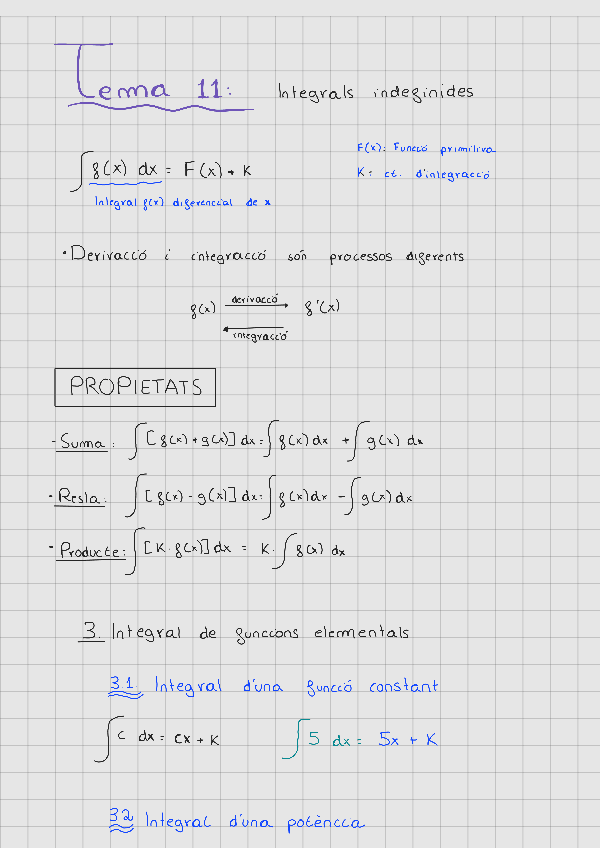 Tema 11: Integrals indefinides
∫ f(x) dx = F(x) + K
F(x): Funció primitiva
K = ct. d'integració
Integral f(x) diferencial de x
· Derivació i integració són processos diferents
f(x) derivació f'(x)
integració
PROPIETATS
- Suma: ∫ [f(x) + g(x)] dx = ∫ f(x) dx + ∫ g(x) dx
· Resta: ∫ [f(x) - g(x)] dx = ∫ f(x) dx - ∫ g(x) dx
· Producte: ∫ [K · f(x)] dx = K · ∫ f(x) dx
3. Integral de funcions elementals
3.1. Integral d'una funció constant
∫ c dx = cx + K ∫ 5 dx = 5x + K
3.2 Integral d'una potència